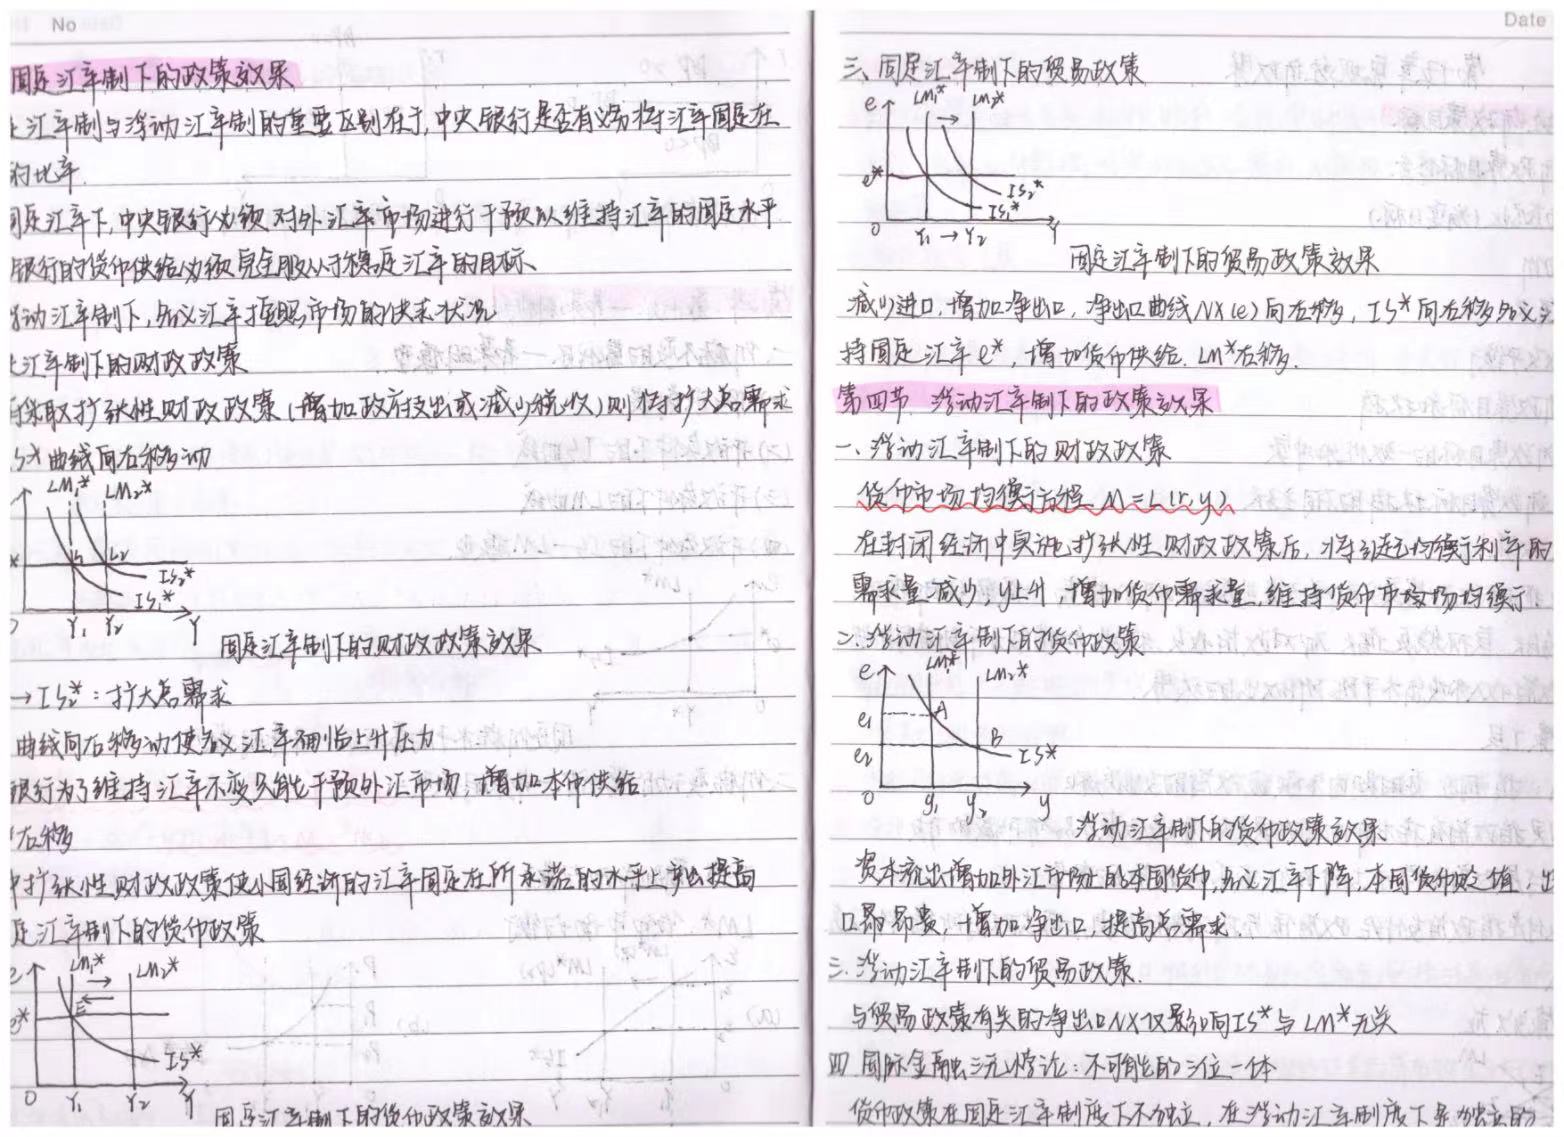 No
固定汇率制下的政策效果
汇率制与浮动汇率制的重要区别在于,中央银行是否有义务将汇率固定在
的比率.
固定汇率下,中央银行必须对外汇率市场进行干预以维持汇率的固定水平
银行的货币供给必须完全服从于稳定汇率的目标、
浮动汇率制下,名义汇率 市场的供求状况
汇率制下的财政政策
采取扩张性财政政策(增加政府支出或减少税收)则将扩大总需求
IS* 曲线向右移动
LM₁* LM₂*
IS₂*
IS₁*
Y₁ Y₂ Y
固定汇率制下的财政政策效果
→IS₂*:扩大总需求
曲线向右移动使名义汇率面临上升压力
银行为了维持汇率不变只能干预外汇市场,增加本币供给
右移
中扩张性财政政策使小国经济的汇率固定在所承诺的水平上,产出提高
定汇率制下的货币政策
LM₁* LM₂*
E
IS*
0 Y₁ Y₂ Y
固定汇率制下的货币政策效果
Date
三、固定汇率制下的贸易政策
e LM₁* LM₂*
e*
IS₂*
IS₁*
0 Y₁ → Y₂ Y
固定汇率制下的贸易政策效果
减少进口,增加净出口,净出口曲线NX(e)向右移,IS*向右移名义
持固定汇率e*,增加货币供给.LM*右移.
第四节.浮动汇率制下的政策效果
一、浮动汇率制下的财政政策
货币市场均衡方程 M=L(r,y)
在封闭经济中实施扩张性财政政策后,将引起均衡利率的
需求量减少,y上升,增加货币需求量,维持货币市场均衡
二.浮动汇率制下的货币政策
e LM₁* LM₂*
e₁ A
e₂ B
IS*
0 y₁ y₂ y
浮动汇率制下的货币政策效果
资本流出增加外汇市场上的本国货币,名义汇率下降,本国货币贬值,出
口 昂贵,增加净出口,提高总需求
三.浮动汇率制下的贸易政策.
与贸易政策有关的净出口NX仅影响IS*与LM*无关
四.国际金融三元悖论:不可能的三位一体
货币政策在固定汇率制度下不独立,在浮动汇率制度下是独立的